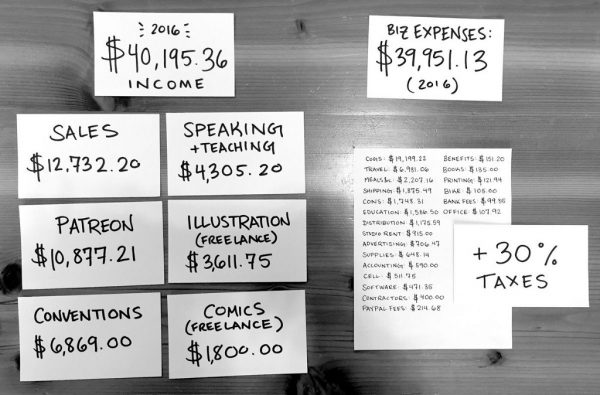 2016
$40,195.36
INCOME
BIZ EXPENSES:
$39,951.13
(2016)
SALES
$12,732.20
SPEAKING
+TEACHING
$4,305.20
PATREON
$10,877.21
ILLUSTRATION
(FREELANCE)
$3,611.75
CONVENTIONS
$6,869.00
COMICS
(FREELANCE)
$1,800.00
COGS: $19,199.22
TRAVEL: $6,931.06
MEALS: $2,207.16
SHIPPING: $1,875.49
CONS: $1,748.31
EDUCATION: $1,586.50
DISTRIBUTION: $1,175.59
STUDIO RENT: $915.00
ADVERTISING: $706.47
SUPPLIES: $648.14
ACCOUNTING: $590.00
CELL: $511.75
SOFTWARE: $471.35
CONTRACTORS: $400.00
PAYPAL FEES: $214.68
BENEFITS: $151.20
BOOKS: $135.00
PRINTING: $121.94
BIKE: $105.00
BANK FEES: $99.55
OFFICE: $107.92
+30%
TAXES